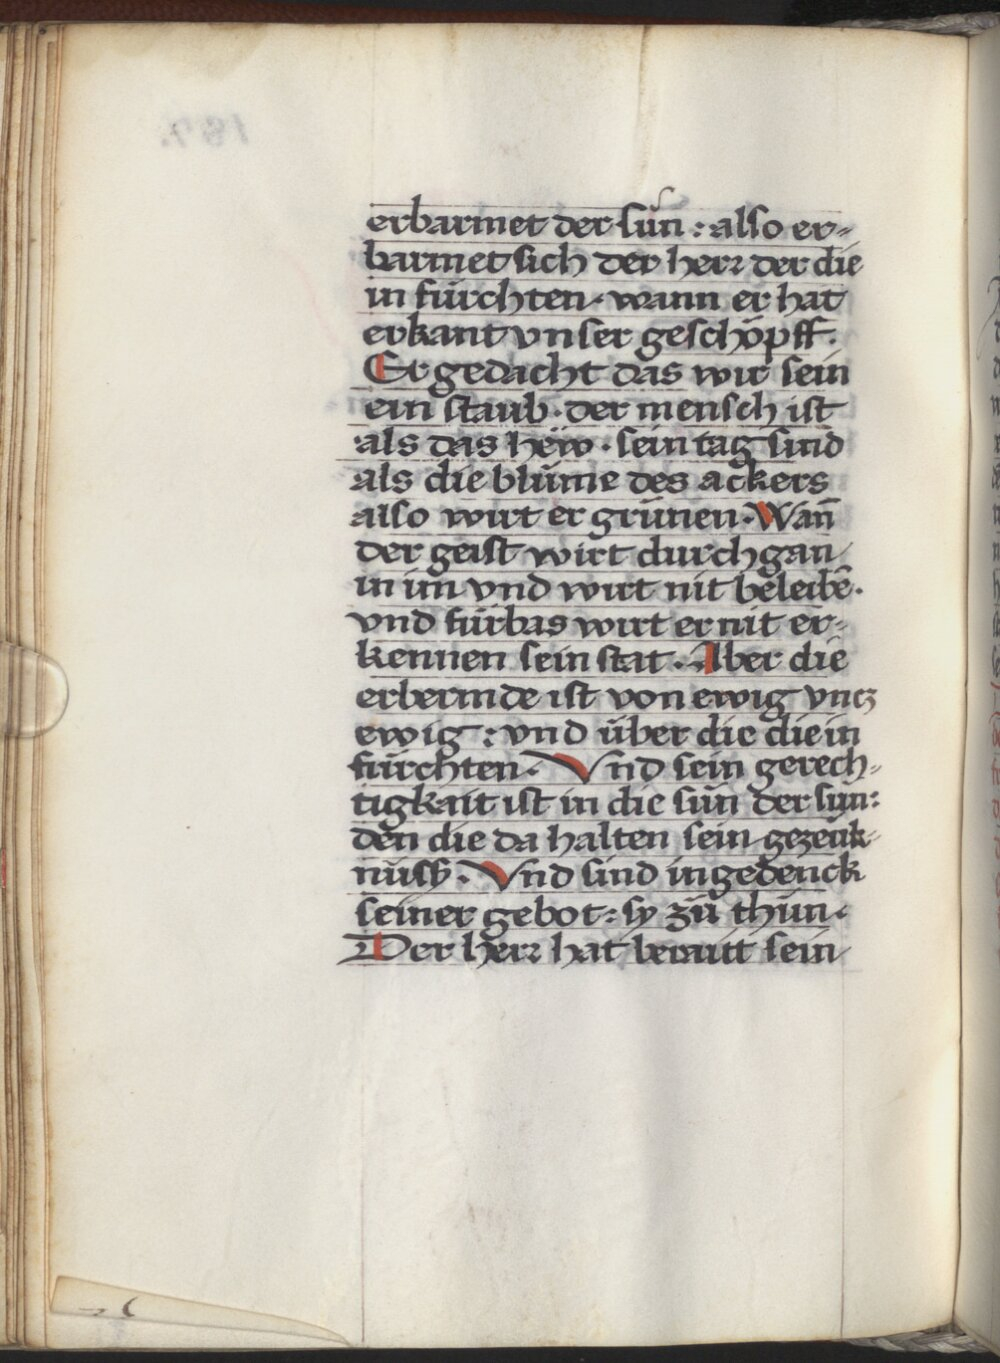 erbarmet der sün : also er⸗
barmet sich der herꝛ der die
in fürchten · wann er hat
erkant vnser geschöpff ·
Er gedacht das wir sein
ein staub · der mensch ist
als das hëw · sein tag sind
als die blůme des ackers
also wirt er grünen · Wan̄
der geist wirt durchgan
in im vnd wirt nit beleibē ·
vnd fürbas wirt er nit er⸗
kennen sein stat · Aber die
erbermde ist von ewig vncz
ewig : vnd über die die in
fürchten · Vnd sein gerech⸗
tigkait ist in die sün der sün:
den die da halten sein gezeük⸗
nüsß · Vnd sind ingedenck
seiner gebot : sy zů thün ·
Der herꝛ hat beraitt sein